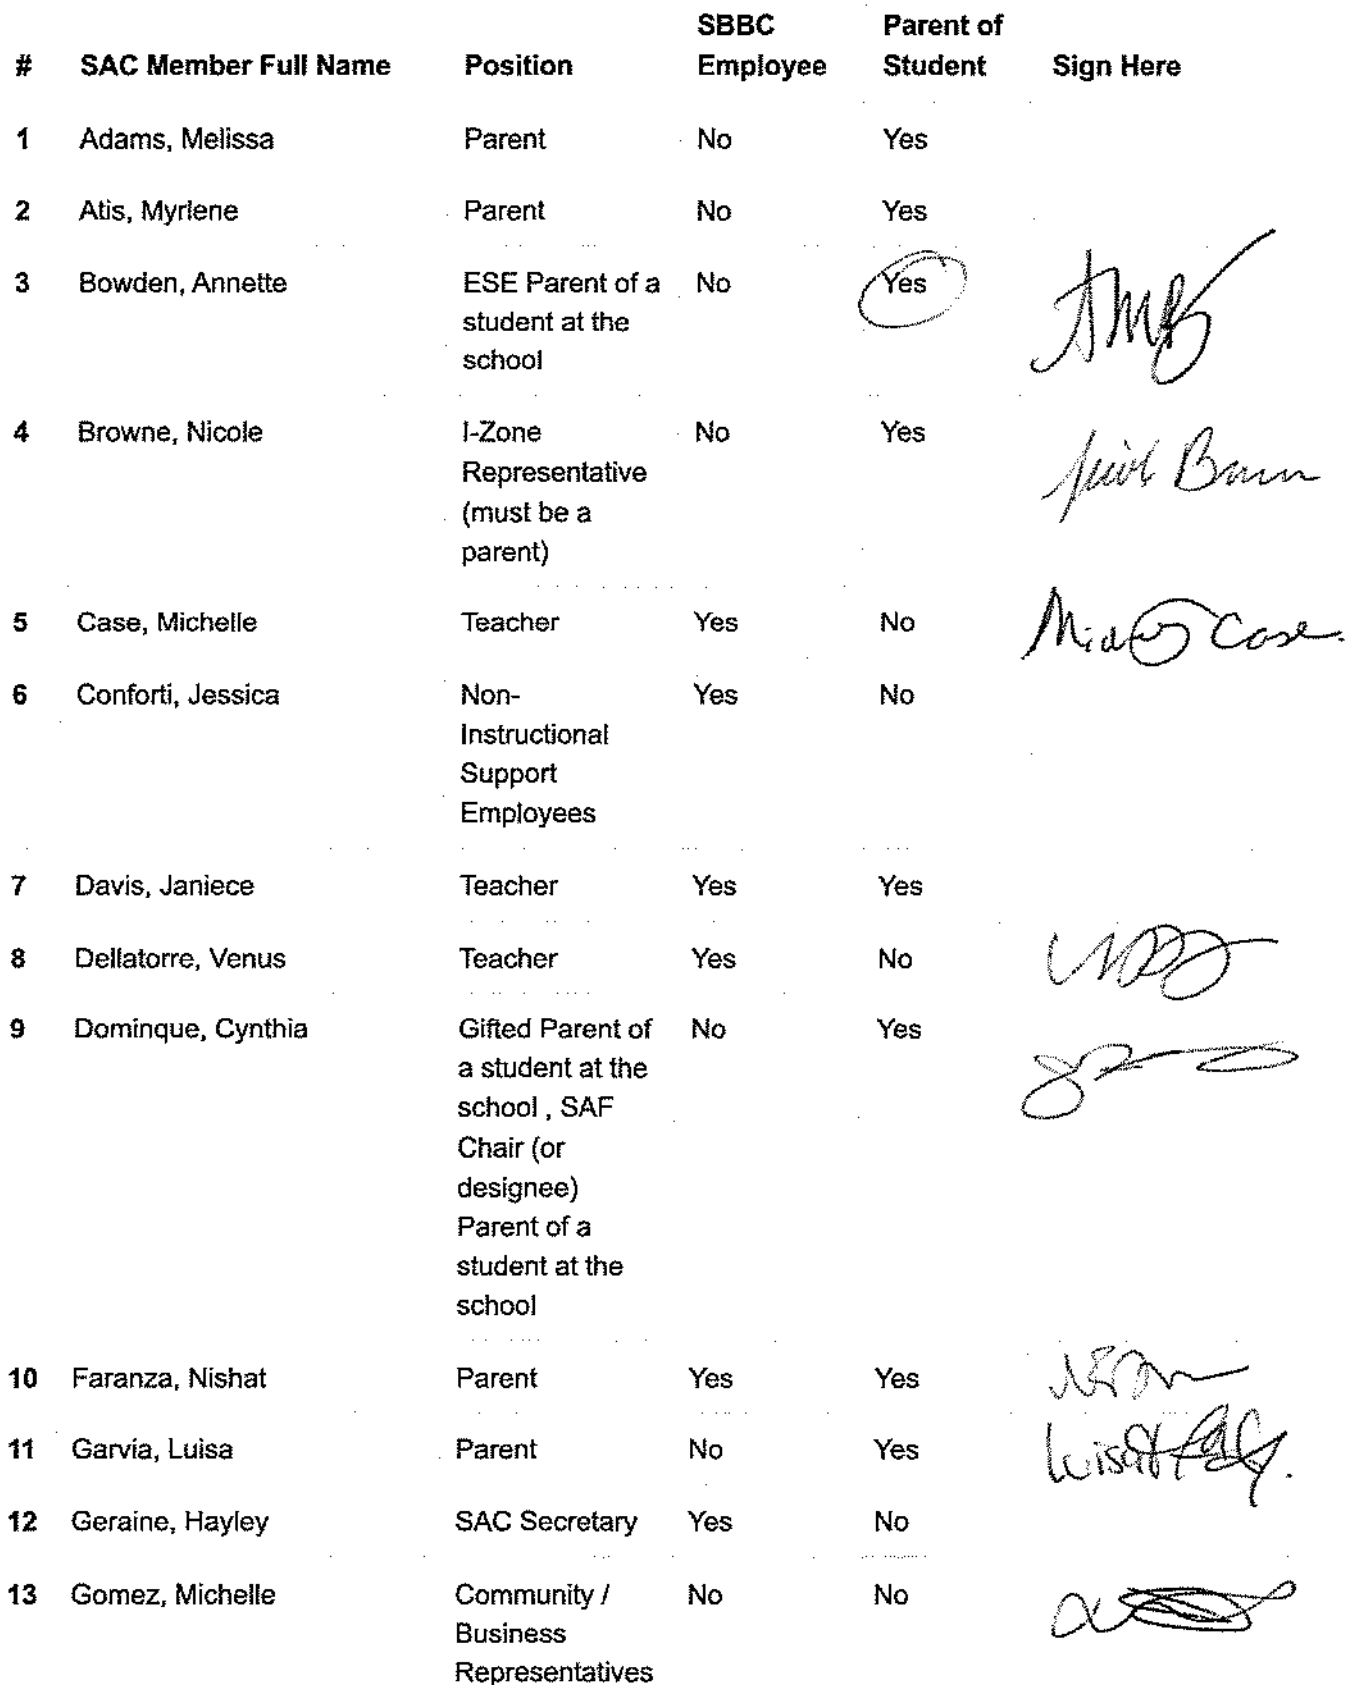 SBBC Parent of
# SAC Member Full Name Position Employee Student Sign Here
1 Adams, Melissa Parent No Yes
2 Atis, Myrlene Parent No Yes
3 Bowden, Annette ESE Parent of a No Yes
student at the
school
4 Browne, Nicole I-Zone No Yes
Representative
(must be a
parent)
5 Case, Michelle Teacher Yes No Case
6 Conforti, Jessica Non- Yes No
Instructional
Support
Employees
7 Davis, Janiece Teacher Yes Yes
8 Dellatorre, Venus Teacher Yes No
9 Dominque, Cynthia Gifted Parent of No Yes
a student at the
school , SAF
Chair (or
designee)
Parent of a
student at the
school
10 Faranza, Nishat Parent Yes Yes
11 Garvia, Luisa Parent No Yes Luisa
12 Geraine, Hayley SAC Secretary Yes No
13 Gomez, Michelle Community / No No
Business
Representatives